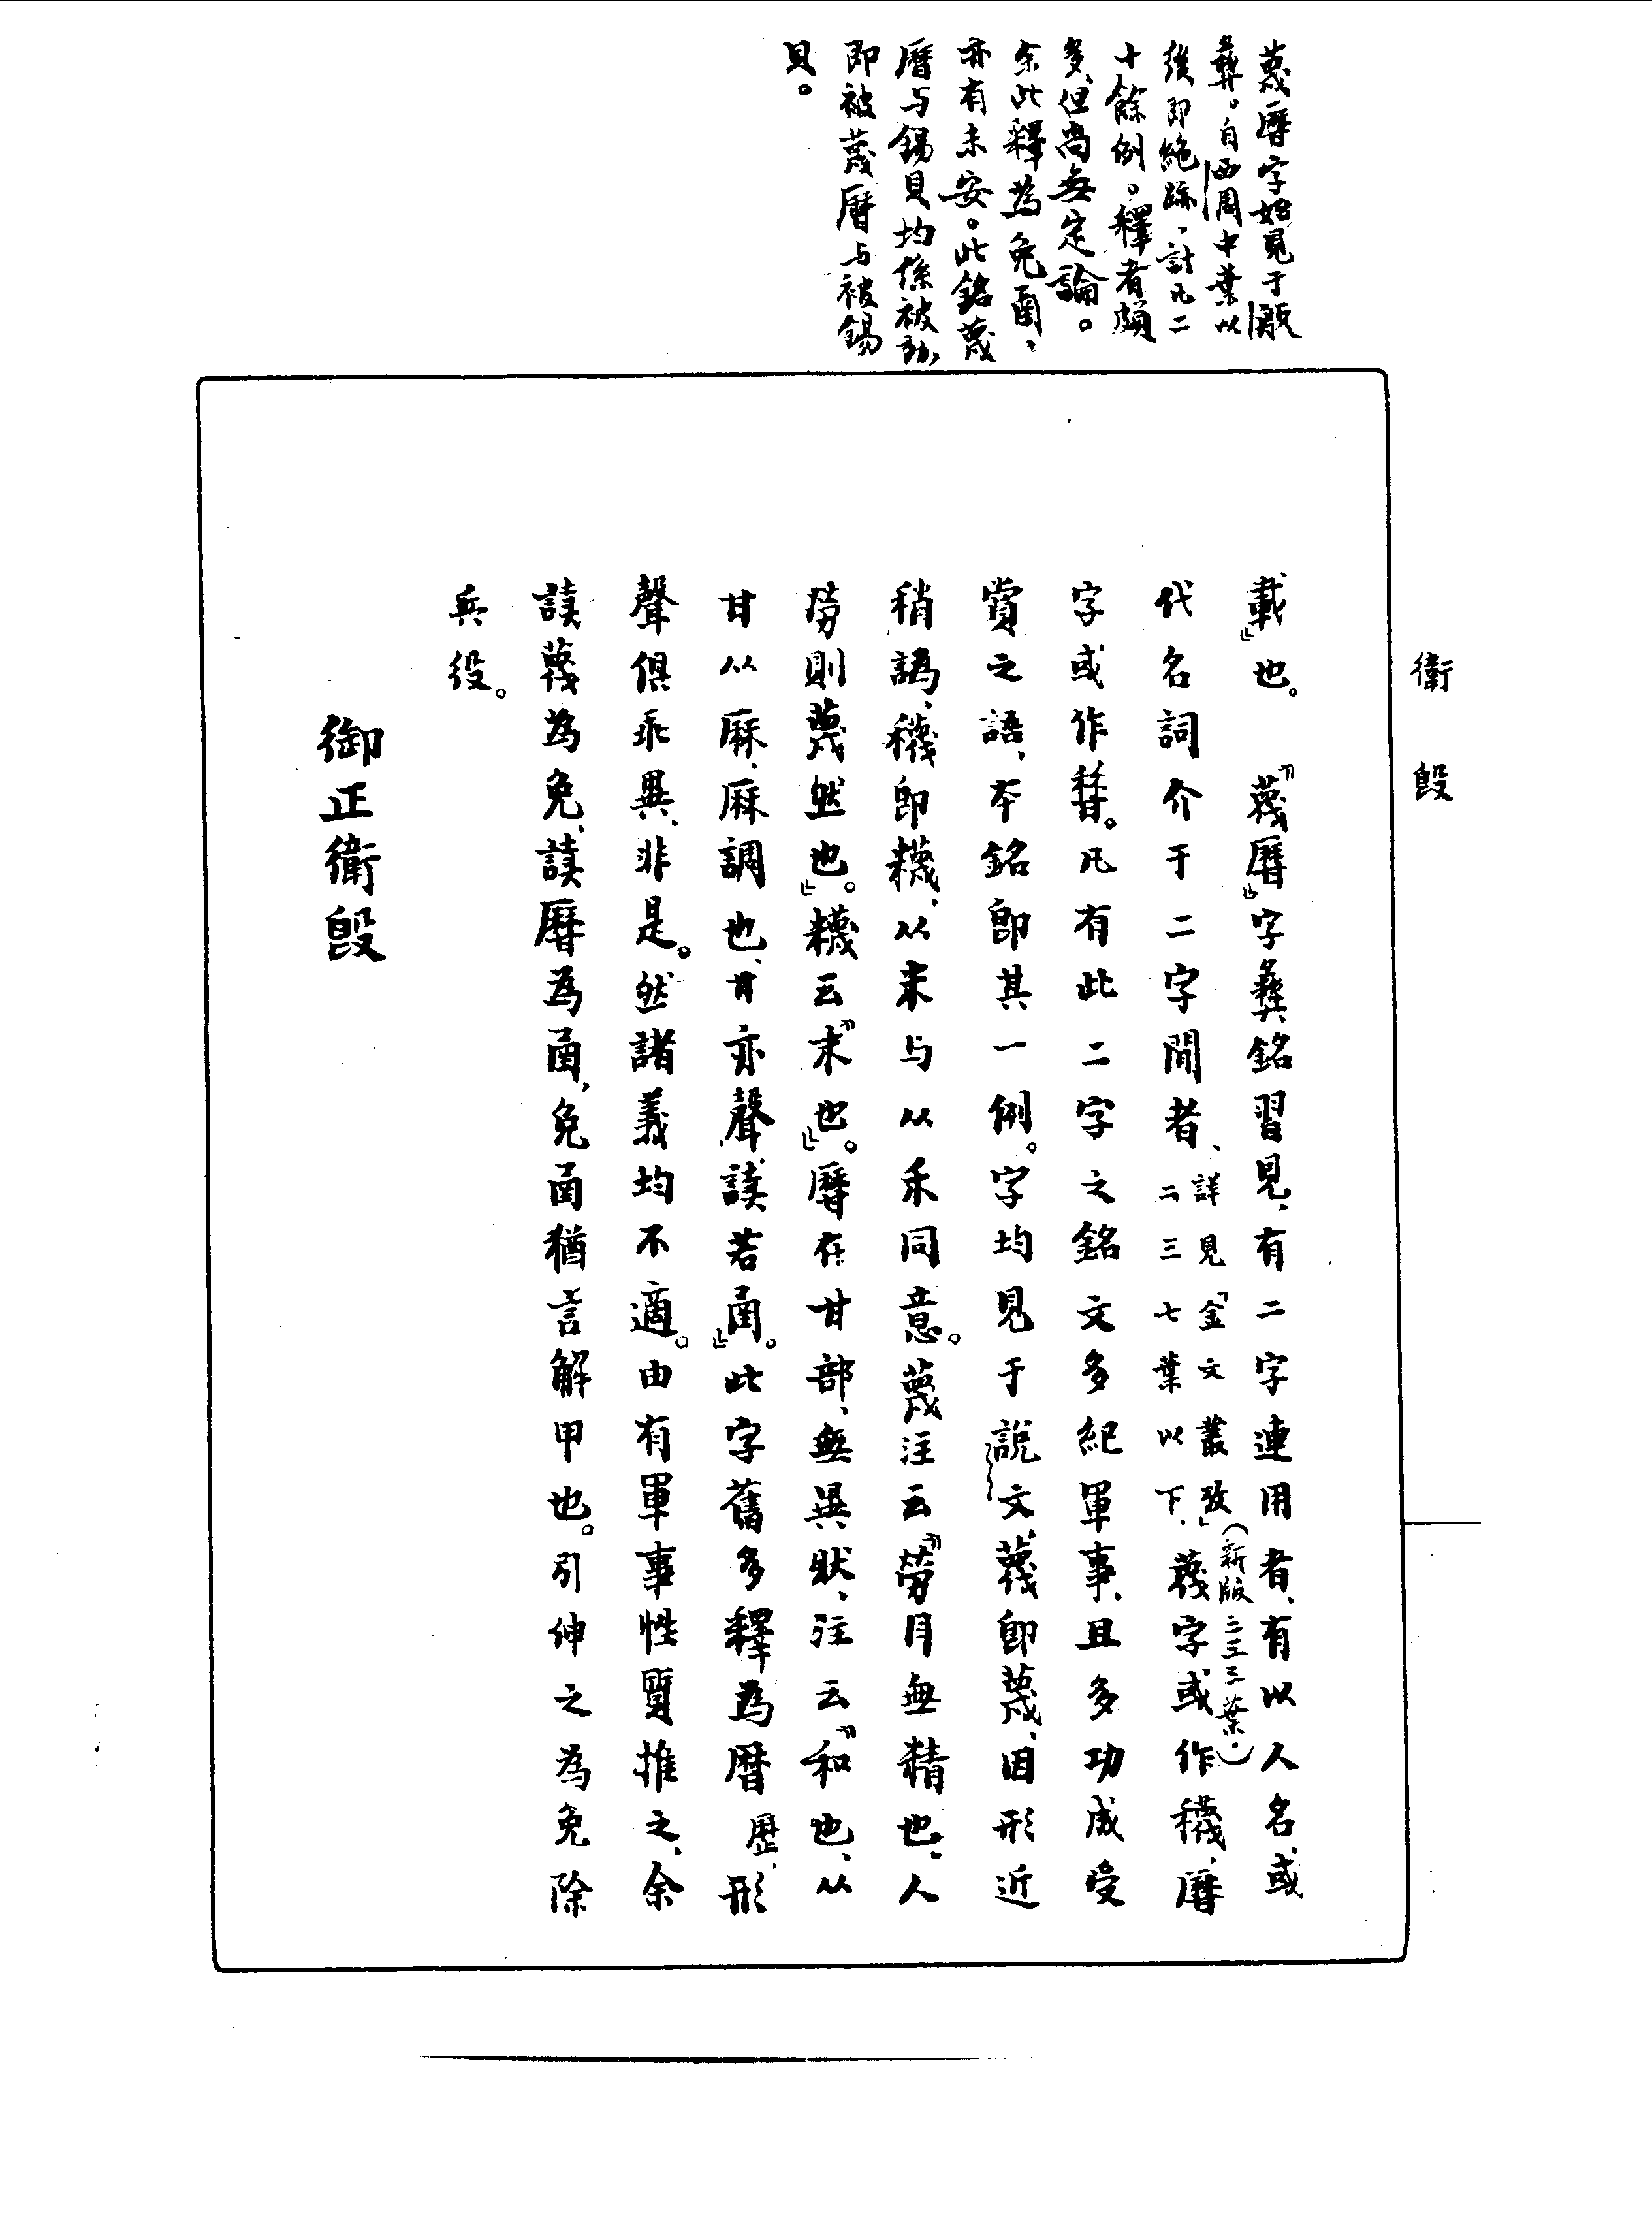 蔑曆字始見于䢅
彝。自西周中葉以
後即絕跡、計凡二
十餘例。釋者頗
多、但尚無定論。
余此釋為免圅、
亦有未安。此銘蔑
曆与錫貝均係被動
即被蔑曆与被錫
貝。
衛𣪘
載」也。 「蔑曆」字彝銘習見、有二字連用者、有以人名、或
代名詞介于二字間者、詳見「金文叢攷」(新版二三三葉。)二三七葉以下、蔑字或作穖、曆
字或作𣋰。凡有此二字之銘文多紀軍事、且多功成受
賞之語、本銘即其一例。字均見于說文、蔑即蔑、因形近
稍譌、穖即䊳、从末与从禾同意。蔑注云「勞目無精也、人
勞則蔑然也」。䊳云「末也」。曆在甘部、無異狀、注云「和也、从
甘从厤、厤調也、甘亦聲、讀若圅」。此字舊多釋為曆歷、形
聲俱乖異、非是。然諸義均不適。由有軍事性質推之、余
讀蔑為免、讀曆為圅、免圅猶言解甲也。引伸之為免除
兵役。
御正衛𣪘